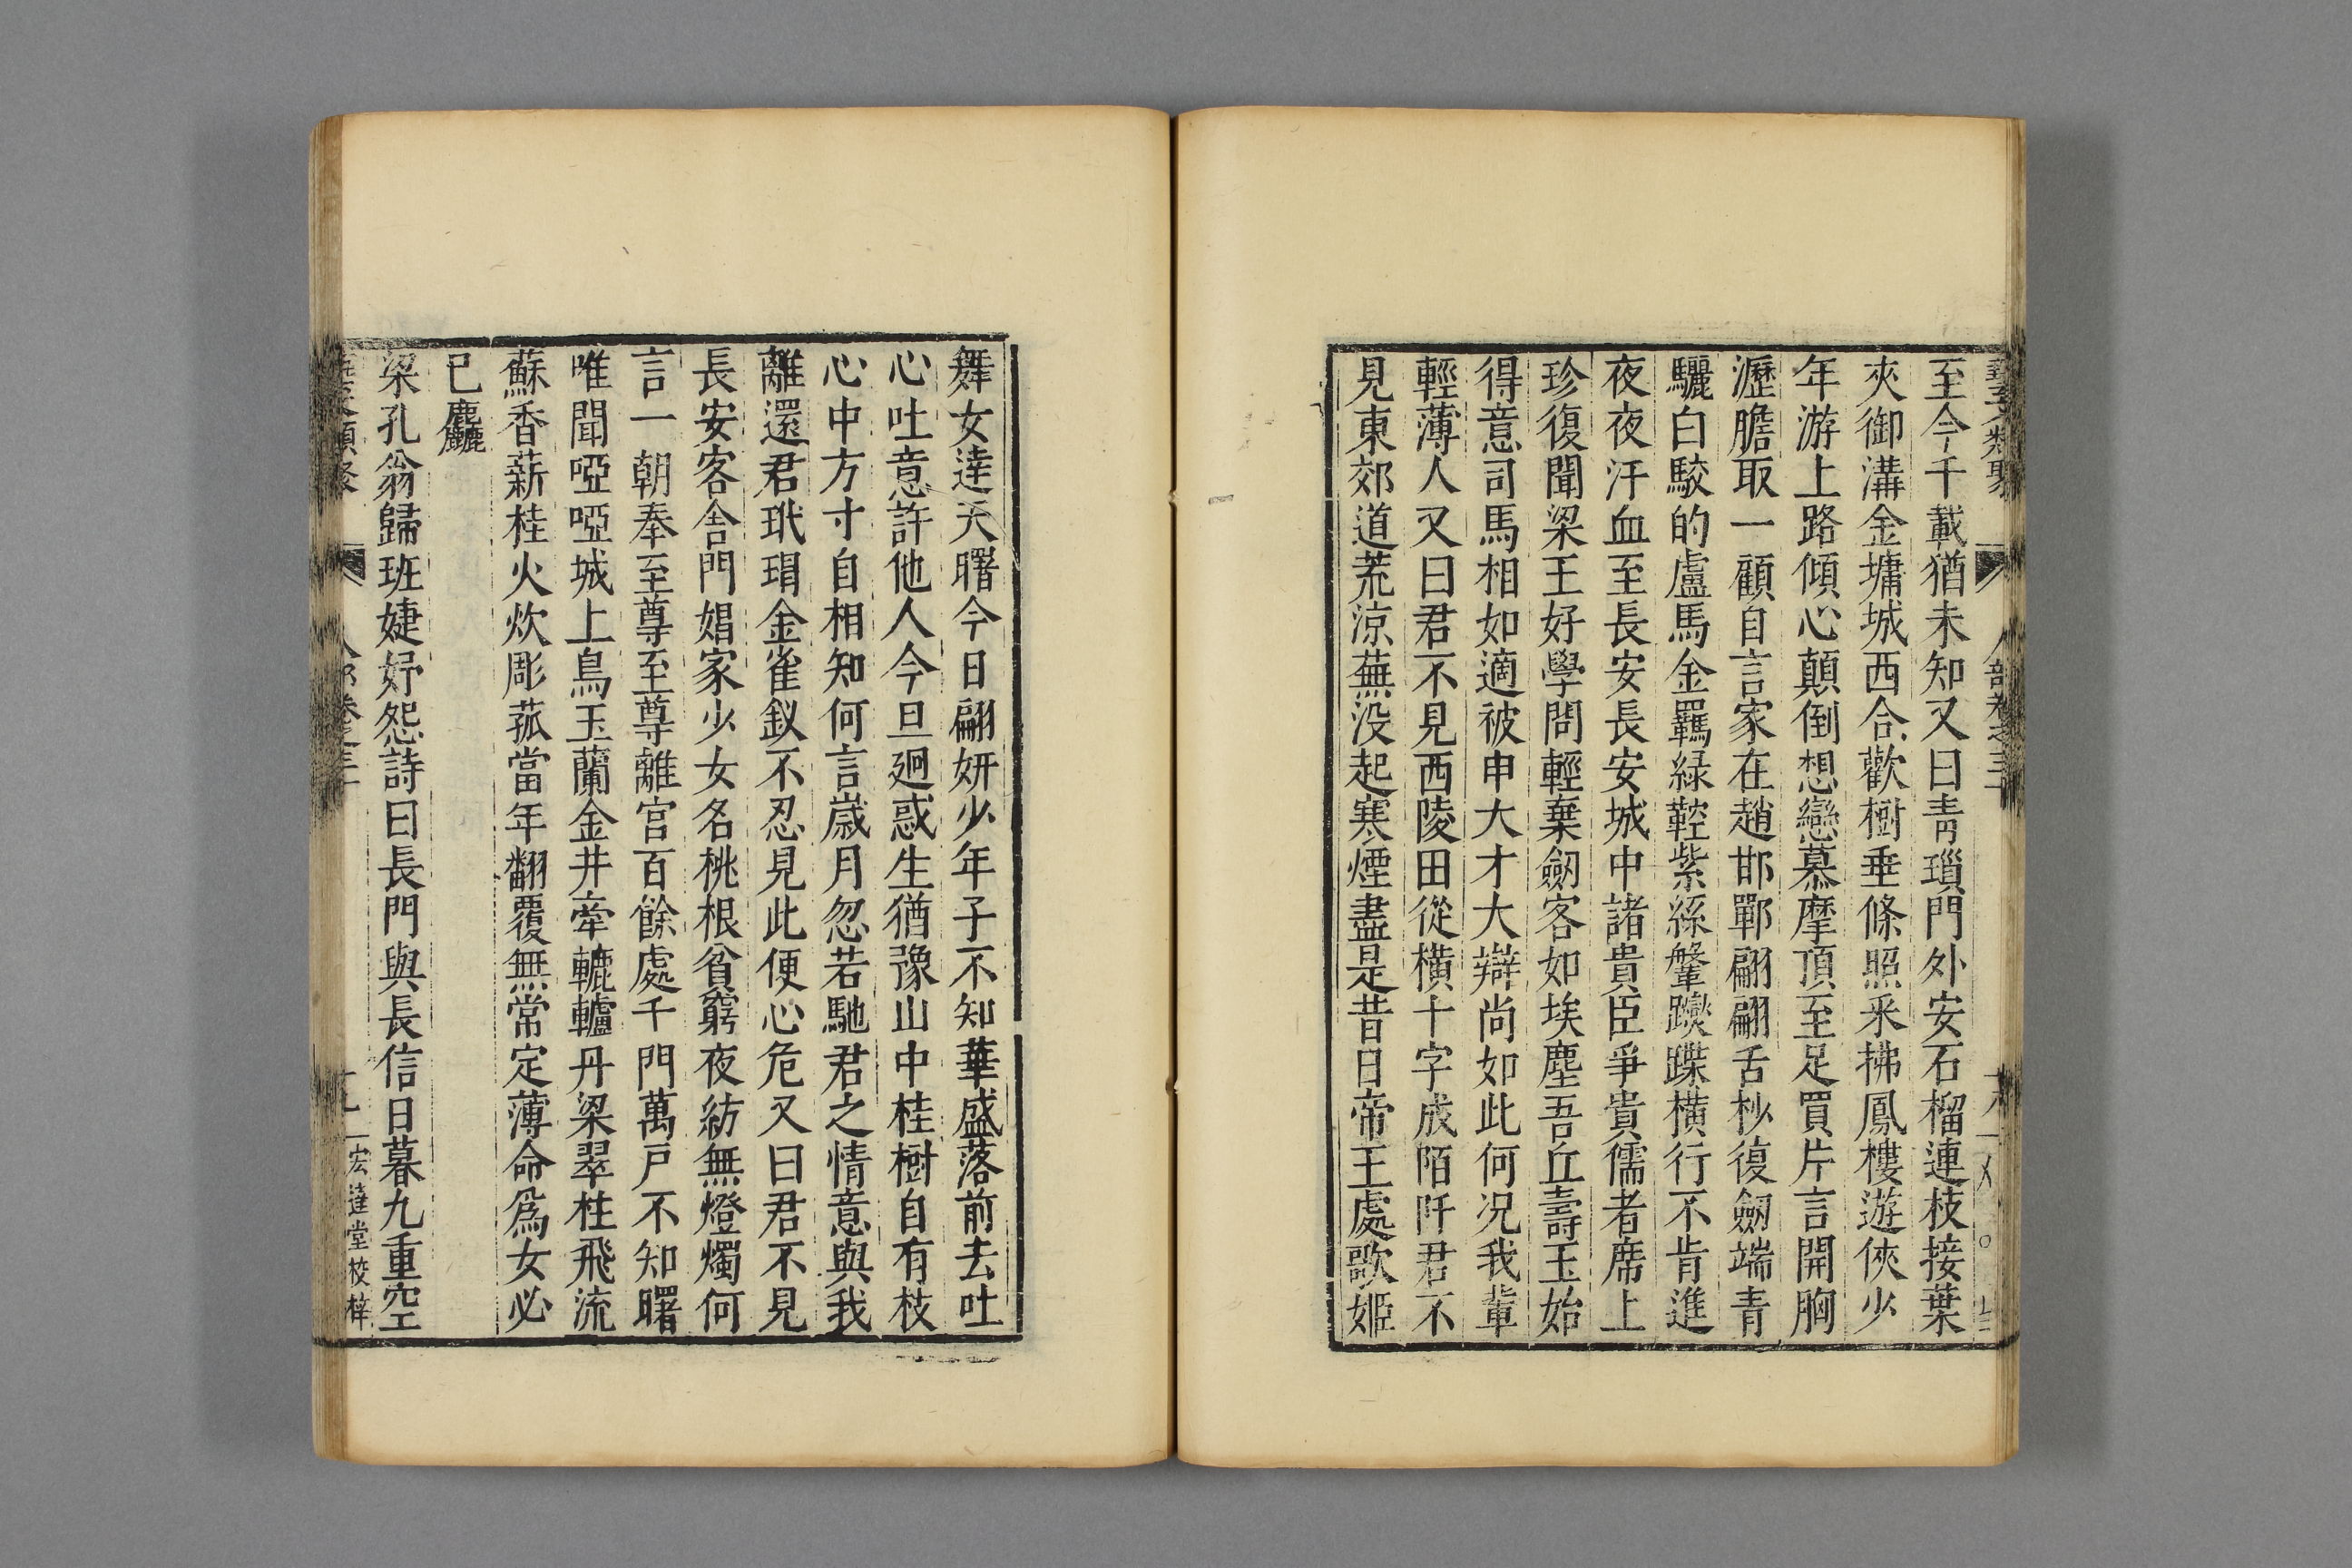 至今千載猶未知又曰青瑣門外安石榴連枝接葉
夾御溝金墉城西合歡樹垂條照釆拂鳳樓遊俠少
年游上路傾心顛倒想戀慕摩頂至足買片言開胸
瀝膽取一顧自言家在趙邯鄲翩翩舌杪復劒端青
驪白駮的盧馬金羈綠鞚紫絲鞶躞蹀橫行不肯進
夜夜汗血至長安長安城中諸貴臣爭貴儒者席上
珍復聞梁王好學問輕棄劒客如埃塵吾丘壽王始
得意司馬相如適被申大才大辯尚如此何況我輩
輕薄人又曰君不見西陵田從橫十字成陌阡君不
見東郊道荒涼蕪沒起寒煙盡是昔日帝王處歌姬
舞女達天曙今日翩妍少年子不知華盛落前去吐
心吐意許他人今旦廻惑生猶豫山中桂樹自有枝
心中方寸自相知何言歲月忽若馳君之情意與我
離還君玳瑁金雀釵不忍見此便心危又曰君不見
長安客舍門娼家少女名桃根貧窮夜紡無燈燭何
言一朝奉至尊至尊離宮百餘處千門萬戶不知曙
唯聞啞啞城上烏玉蘭金井牽轆轤丹梁翠柱飛流
蘇香薪桂火炊彫菰當年翻覆無常定薄命爲女必
已麤
梁孔翁歸班婕妤怨詩曰長門與長信日暮九重空
宏達堂校梓